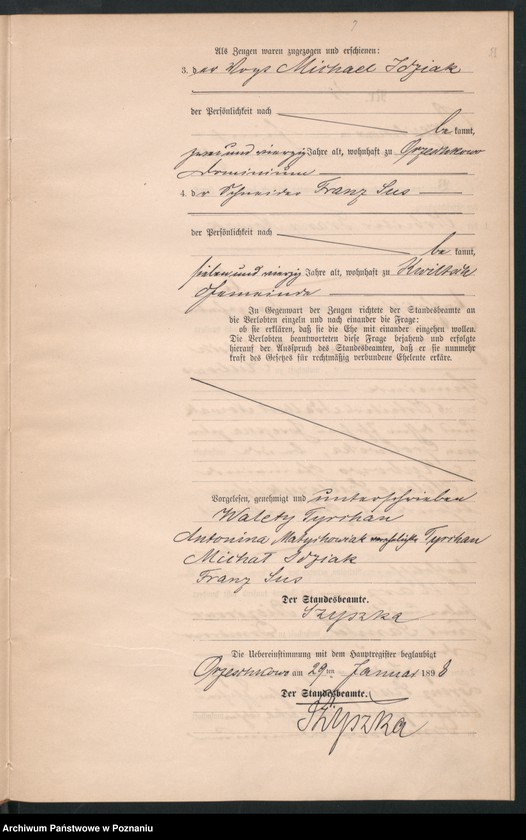 Als Zeugen waren zugezogen und erschienen:
3. der Vogt Michael Idziak
der Persönlichkeit nach
bekannt,
zwei und vierzig Jahre alt, wohnhaft zu Orzeschkowo
Dominium
4. der Schneider Franz Sus
der Persönlichkeit nach
bekannt,
sieben und vierzig Jahre alt, wohnhaft zu Kwiltsch
Gemeinde
In Gegenwart der Zeugen richtete der Standesbeamte an
die Verlobten einzeln und nach einander die Frage:
ob sie erklären, daß sie die Ehe mit einander eingehen wollen.
Die Verlobten beantworteten diese Frage bejahend und erfolgte
hierauf der Ausspruch des Standesbeamten, daß er sie nunmehr
kraft des Gesetzes für rechtmäßig verbundene Eheleute erkäre.
Vorgelesen, genehmigt und unterschrieben
Walety Tyrchan
Antonina Matyschowiak verehelichte Tyrchan
Michał Idziak
Franz Sus
Der Standesbeamte.
Szyszka
Die Uebereinstimmung mit dem Hauptregister beglaubigt
Orzeschkowo am 29ten Januar 1898
Der Standesbeamte.
Szyszka
Archiwum Państwowe w Poznaniu